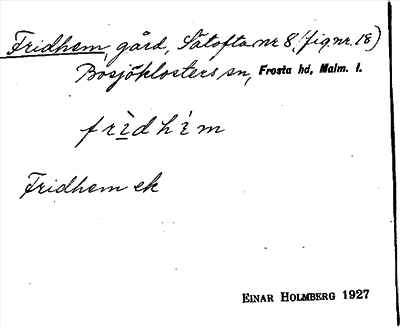 Fridhem, gård, Sätofta nr 8 (fig nr. 18)
Bosjöklosters sn, Frosta hd, Malm. l.
frìdhèm
Fridhem ek
EINAR HOLMBERG 1927